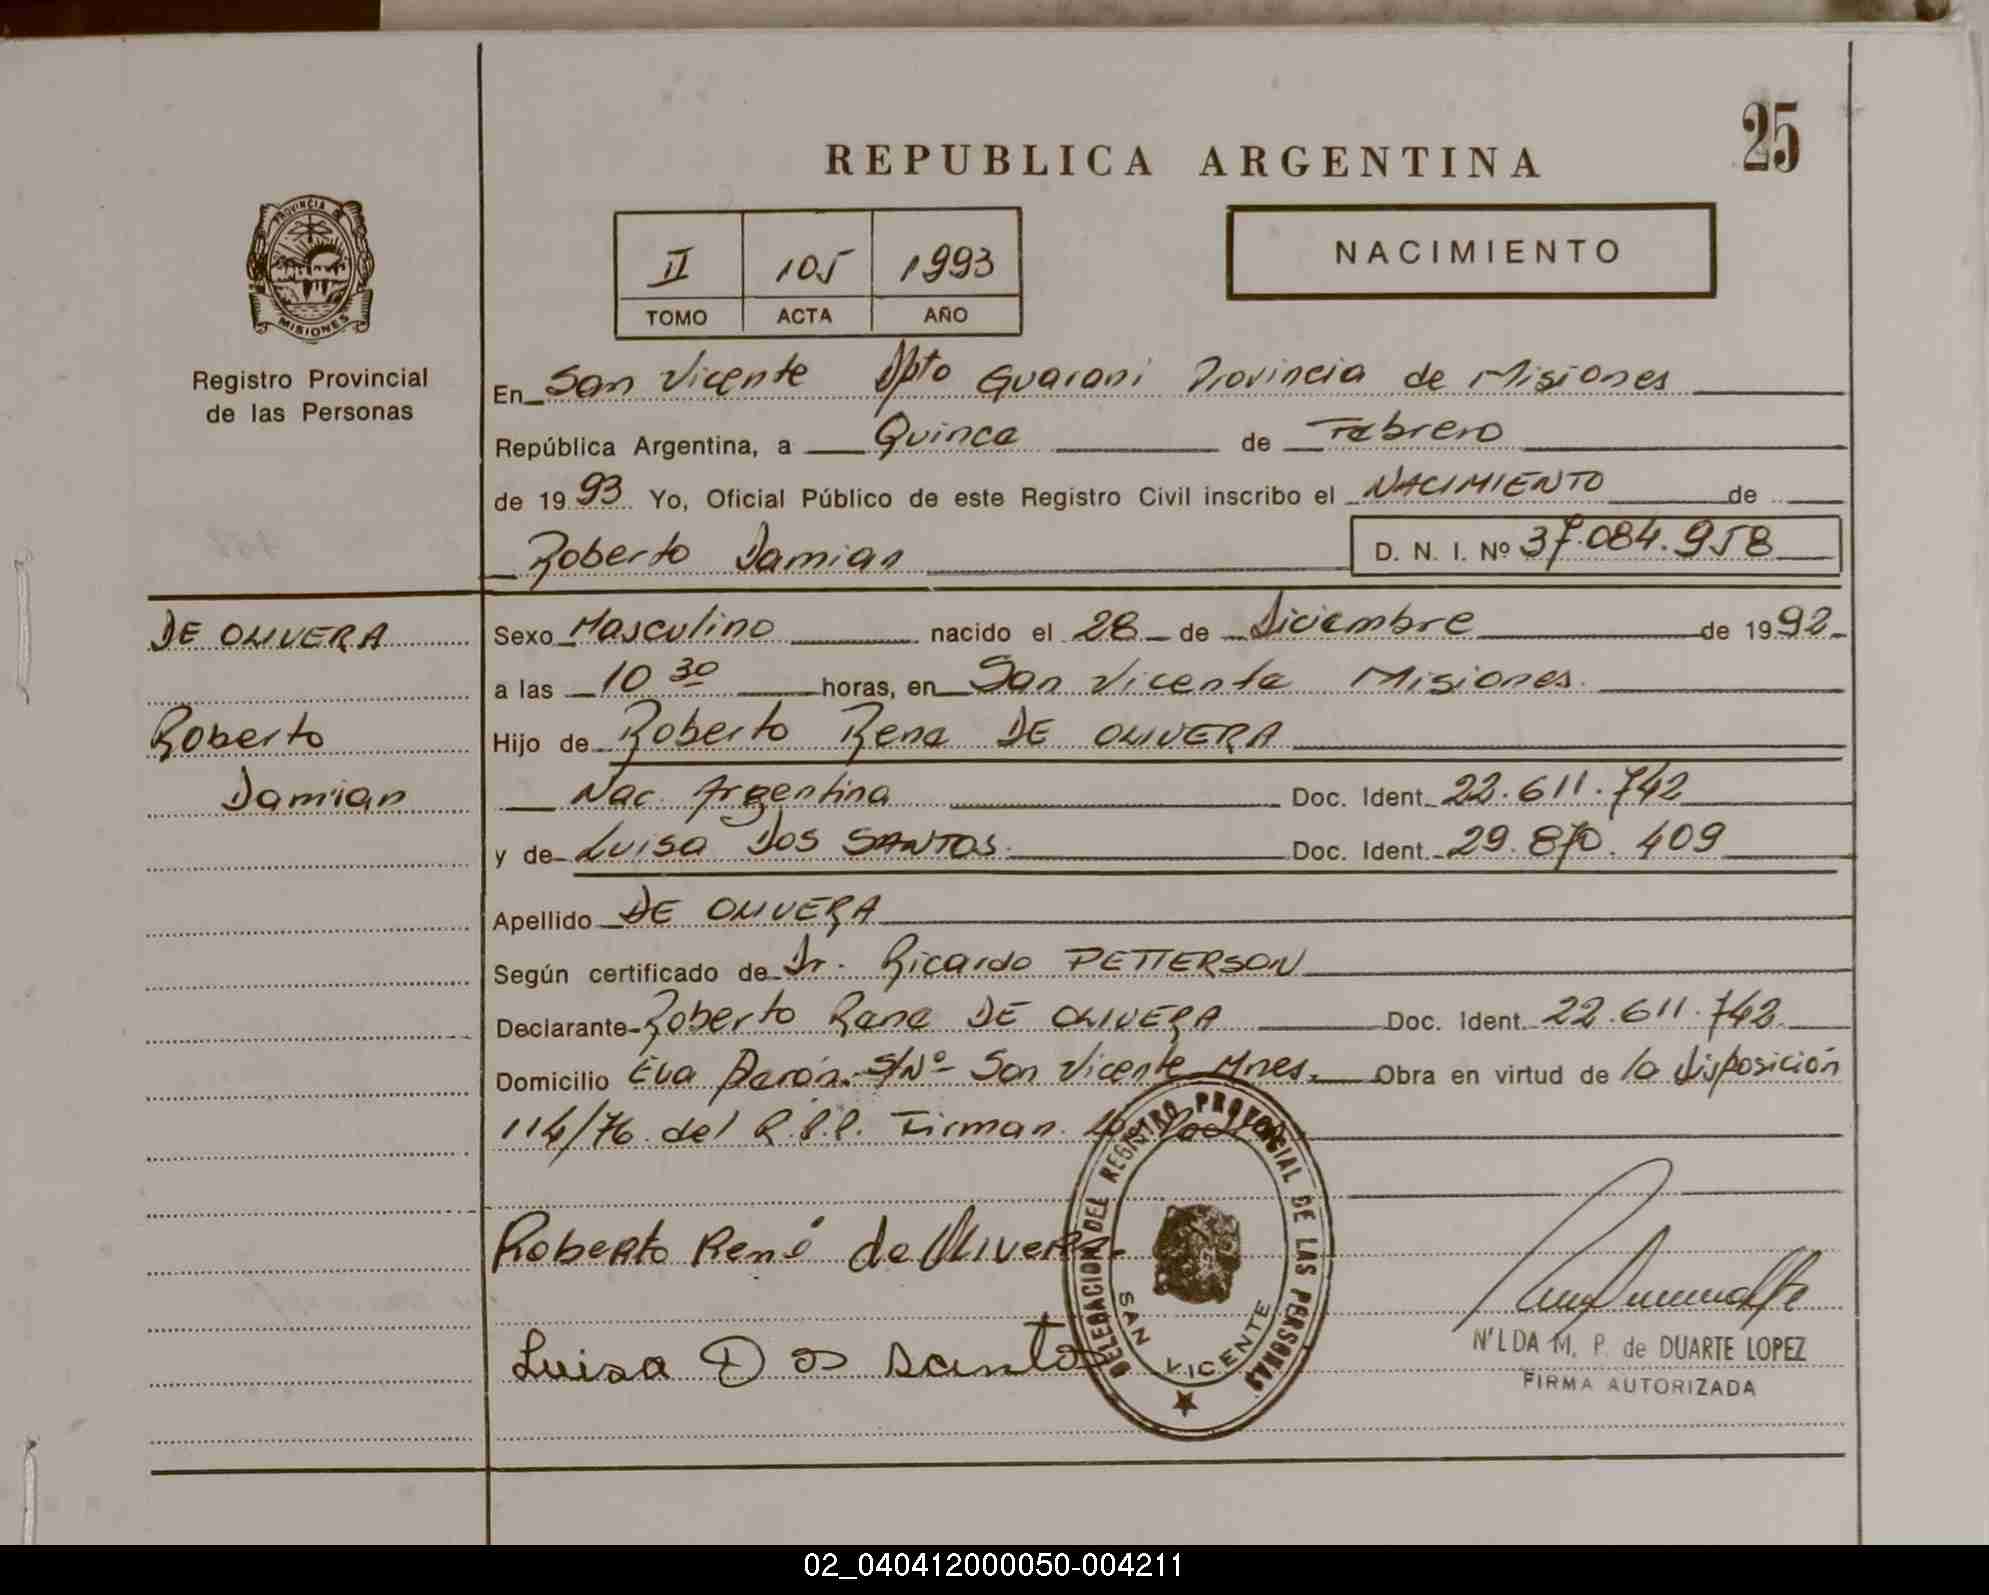 25
REPUBLICA ARGENTINA
PROVINCIA DE
MISIONES
Registro Provincial
de las Personas
II 105 1993
TOMO ACTA AÑO
NACIMIENTO
En San Vicente Dpto Guarani Provincia de Misiones
República Argentina, a Quince de Febrero
de 1993 Yo, Oficial Público de este Registro Civil inscribo el NACIMIENTO de
Roberto Damian D. N. I. Nº 37.084.958
DE OLIVERA
Roberto
Damian
Sexo Masculino nacido el 28 de Diciembre de 1992
a las 10 30 horas, en San Vicente Misiones.
Hijo de Roberto Rene DE OLIVERA
Nac. Argentina Doc. Ident. 22.611.742
y de Luisa DOS SANTOS. Doc. Ident. 29.870.409
Apellido DE OLIVERA
Según certificado de Dr. Ricardo PETTERSON
Declarante Roberto Rene DE OLIVERA Doc. Ident. 22.611.742
Domicilio Eva Perón S/Nº San Vicente Mnes. Obra en virtud de la disposición
114/76 del R.P.P. Firman los
Roberto René de Olivera
Luisa Dos santos
DELEGACION DEL REGISTRO PROVINCIAL DE LAS PERSONAS
SAN VICENTE
NILDA M. P. de DUARTE LOPEZ
FIRMA AUTORIZADA
02_040412000050-004211